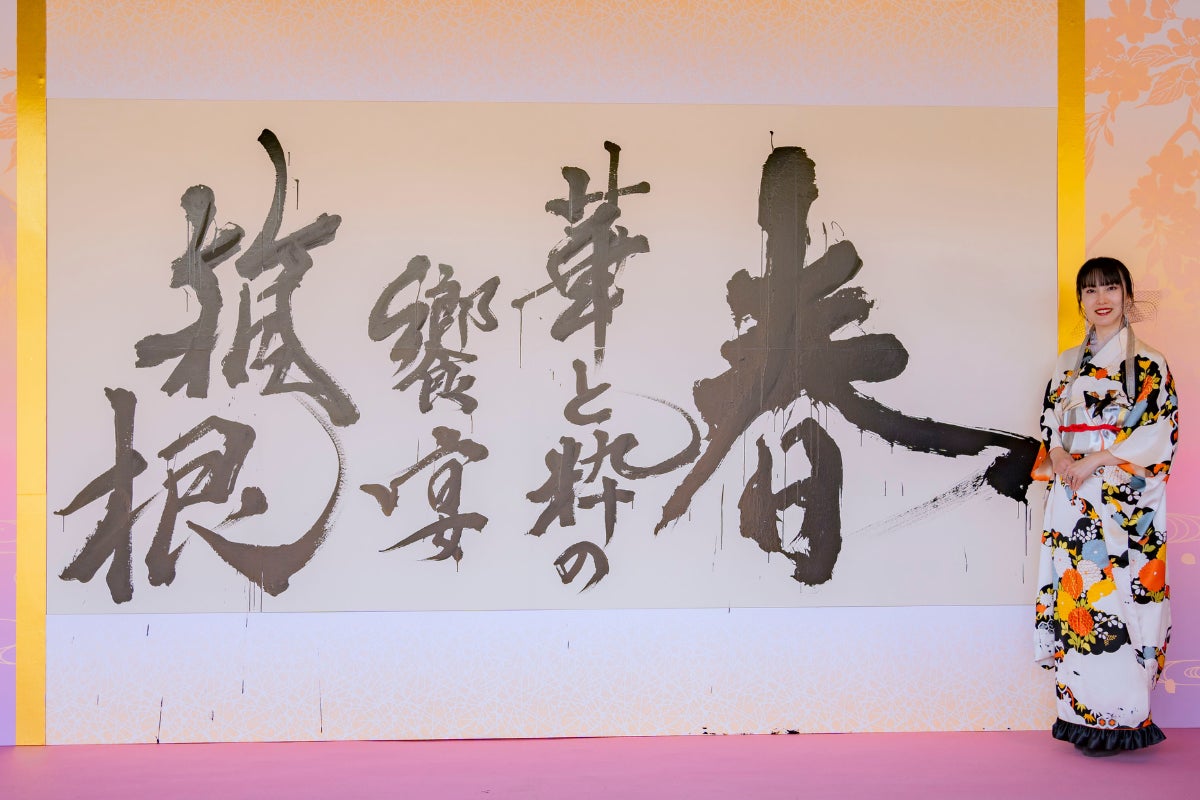 春
華と粋の
饗宴
箱根